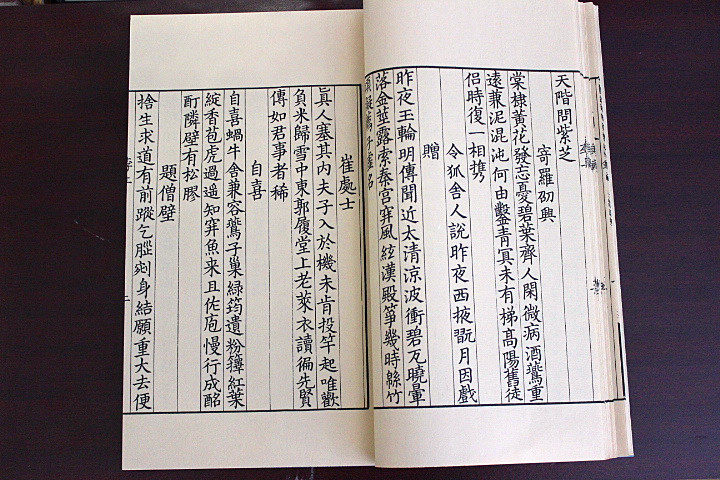 天階問紫芝
寄羅劭興
棠棣黃花發忘憂碧葉齊人閑微病酒鷰重
遠蒹泥混沌何由鑿青冥未有梯高陽舊徒
侶時復一相携
令狐舍人說昨夜西掖翫月因戲
贈
昨夜玉輪明傳聞近太清涼波衝碧瓦曉暈
落金莖露索秦宮穽風絃漢殿箏幾時緜竹
頌擬薦子虛名
崔處士
眞人塞其內夫子入於機未肯投竿起唯歡
負米歸雪中東郭履堂上老萊衣讀徧先賢
傳如君事者稀
自喜
自喜蝸牛舍兼容鷰子巢綠筠遺粉籜紅葉
綻香苞虎過遥知穽魚来且佐庖慢行成酩
酊隣壁有松膠
題僧壁
捨生求道有前蹤乞腦剜身結願重大去便